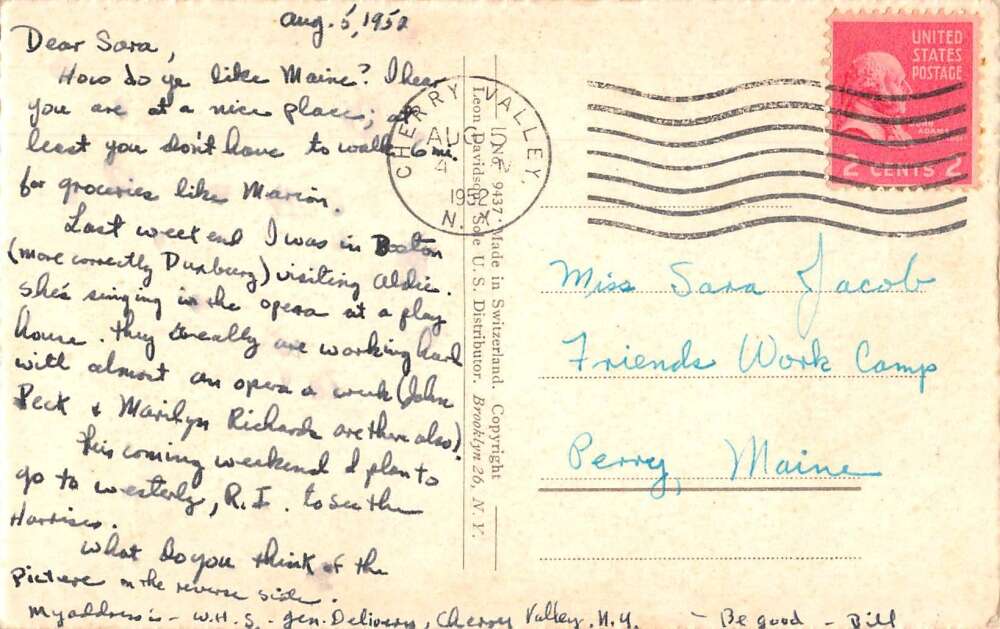 Aug. 5, 1952
Dear Sara,
How do ye like Maine? I hear
you are at a nice place; at
least you don't have to walk 6 mi.
for groceries like Marion.
Last week end I was in Boston
(more correctly Duxbury) visiting Aldie.
She's singing in the opera at a play
house. They really are working hard
with almost an opera a week (John
Peck & Marilyn Richards are there also).
This coming weekend I plan to
go to Westerly, R.I. to see the
Harrises.
What do you think of the
picture on the reverse side.
My address is - W.H.S. - Gen. Delivery, Cherry Valley, N.Y. - Be good - Bill
CHERRY VALLEY,
AUG
4
1952
N.Y.
Leon Davidson, Sole U. S. Distributor. Brooklyn 26, N. Y.
9437. Made in Switzerland. Copyright
UNITED
STATES
POSTAGE
JOHN ADAMS
2 CENTS 2
Miss Sara Jacob
Friends Work Camp
Perry, Maine